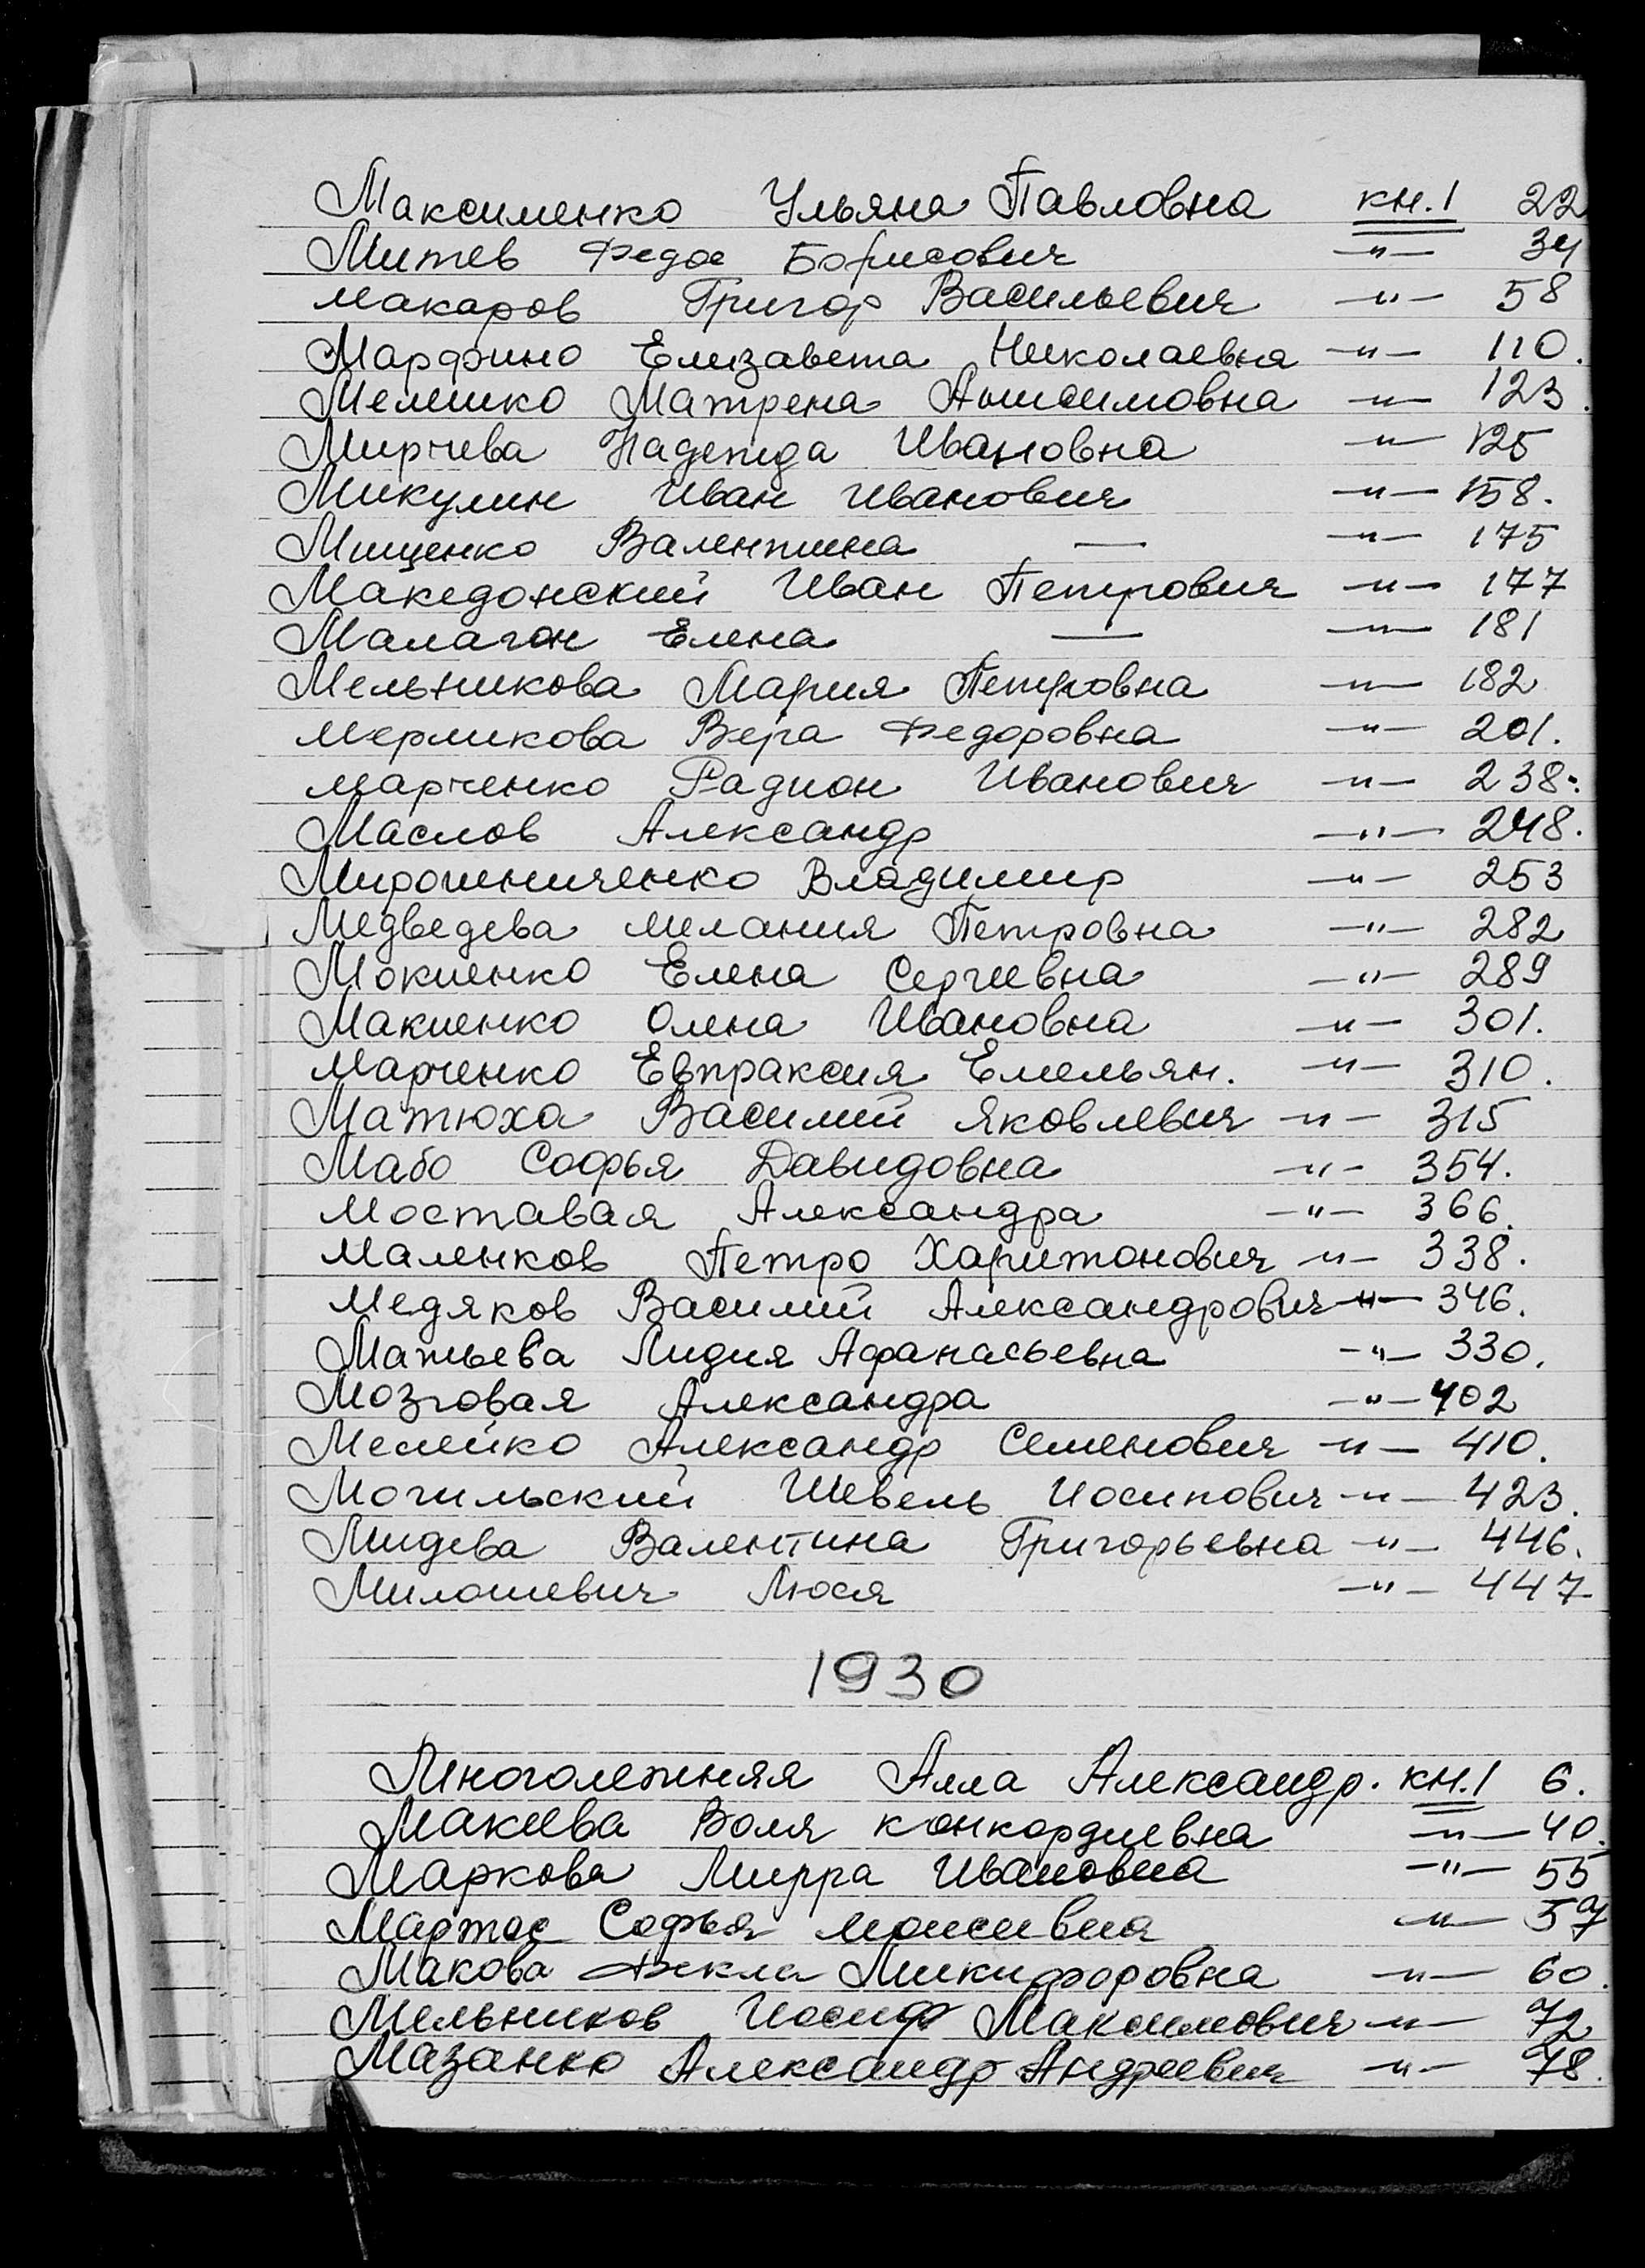 Максименко Ульяна Павловна кн.1 22
Митев Федос Борисович —"— 34
Макаров Григор Васильевич —"— 58
Марфино Елизавета Николаевна —"— 110.
Мелешко Матрена Анисимовна —"— 123.
Мирчева Надежда Ивановна —"— 125
Микулин Иван Иванович —"— 158.
Мищенко Валентина — —"— 175
Македонский Иван Петрович —"— 177
Малагон Елена — —"— 181
Мельникова Мария Петровна —"— 182
Мерликова Вера Федоровна —"— 201.
Марченко Радион Иванович —"— 238.
Маслов Александр —"— 248.
Мирошниченко Владимир —"— 253
Медведева Мелания Петровна —"— 282
Мокиенко Елена Сергеевна —"— 289
Макиенко Олена Ивановна —"— 301.
Марченко Евпраксия Емельян. —"— 310.
Матюха Василий Яковлевич —"— 315
Мабо Софья Давидовна —"— 354.
Моставая Александра —"— 366.
Маленков Петро Харитонович —"— 338.
Медяков Василий Александрович —"— 346.
Матьева Лидия Афанасьевна —"— 330.
Мозговая Александра —"— 402
Мелейко Александр Семенович —"— 410.
Могильский Шевель Иосипович —"— 423.
Мидева Валентина Григорьевна —"— 446.
Милошевич Люся —"— 447
1930
Многолетняя Алла Александр. кн.1 6.
Макеева Воля Конкордиевна —"— 40.
Маркова Мирра Ивановна —"— 55
Мартос Софья Моисеевна —"— 57
Макова Фекла Микифоровна —"— 60.
Мельников Иосиф Максимович —"— 72
Мазанко Александр Андреевич —"— 78.